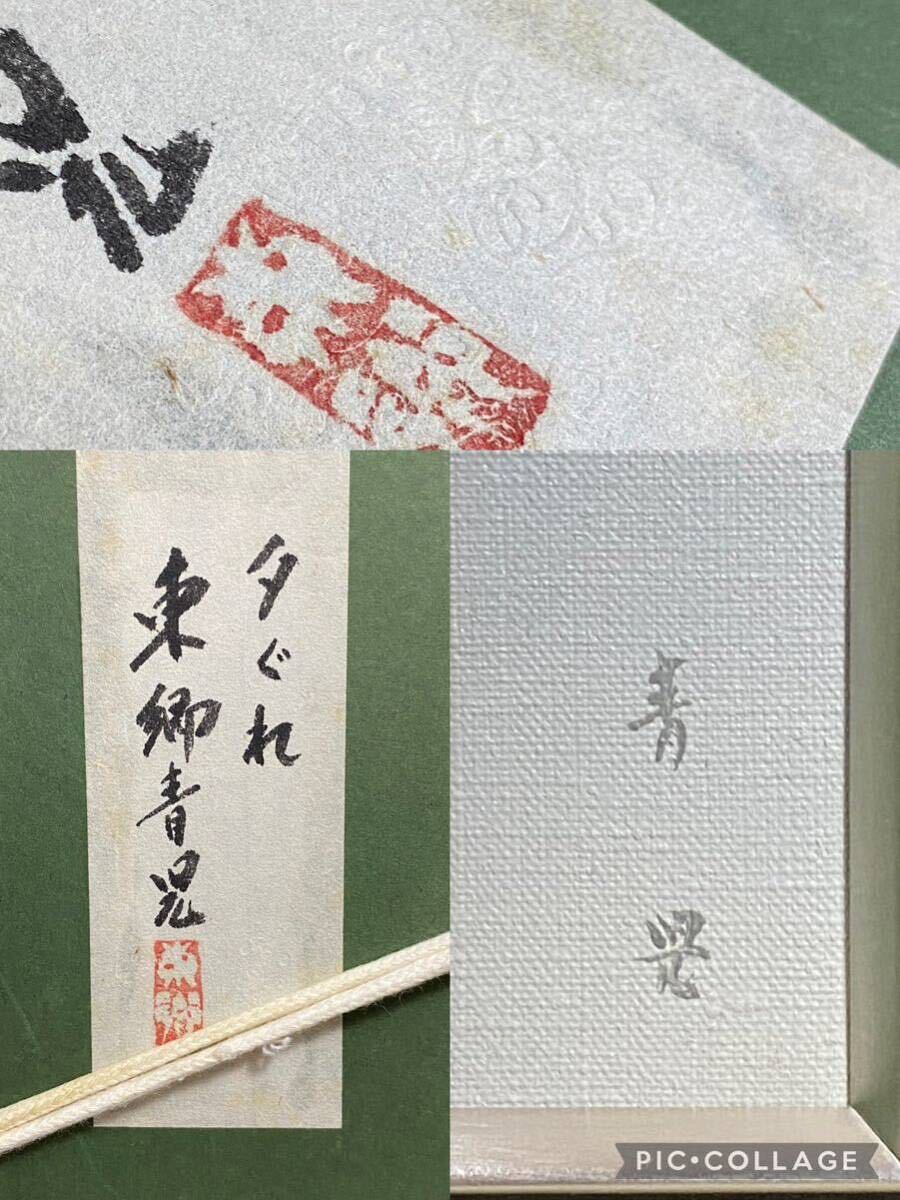 夕ぐれ
東郷青児
青
児
PIC•COLLAGE